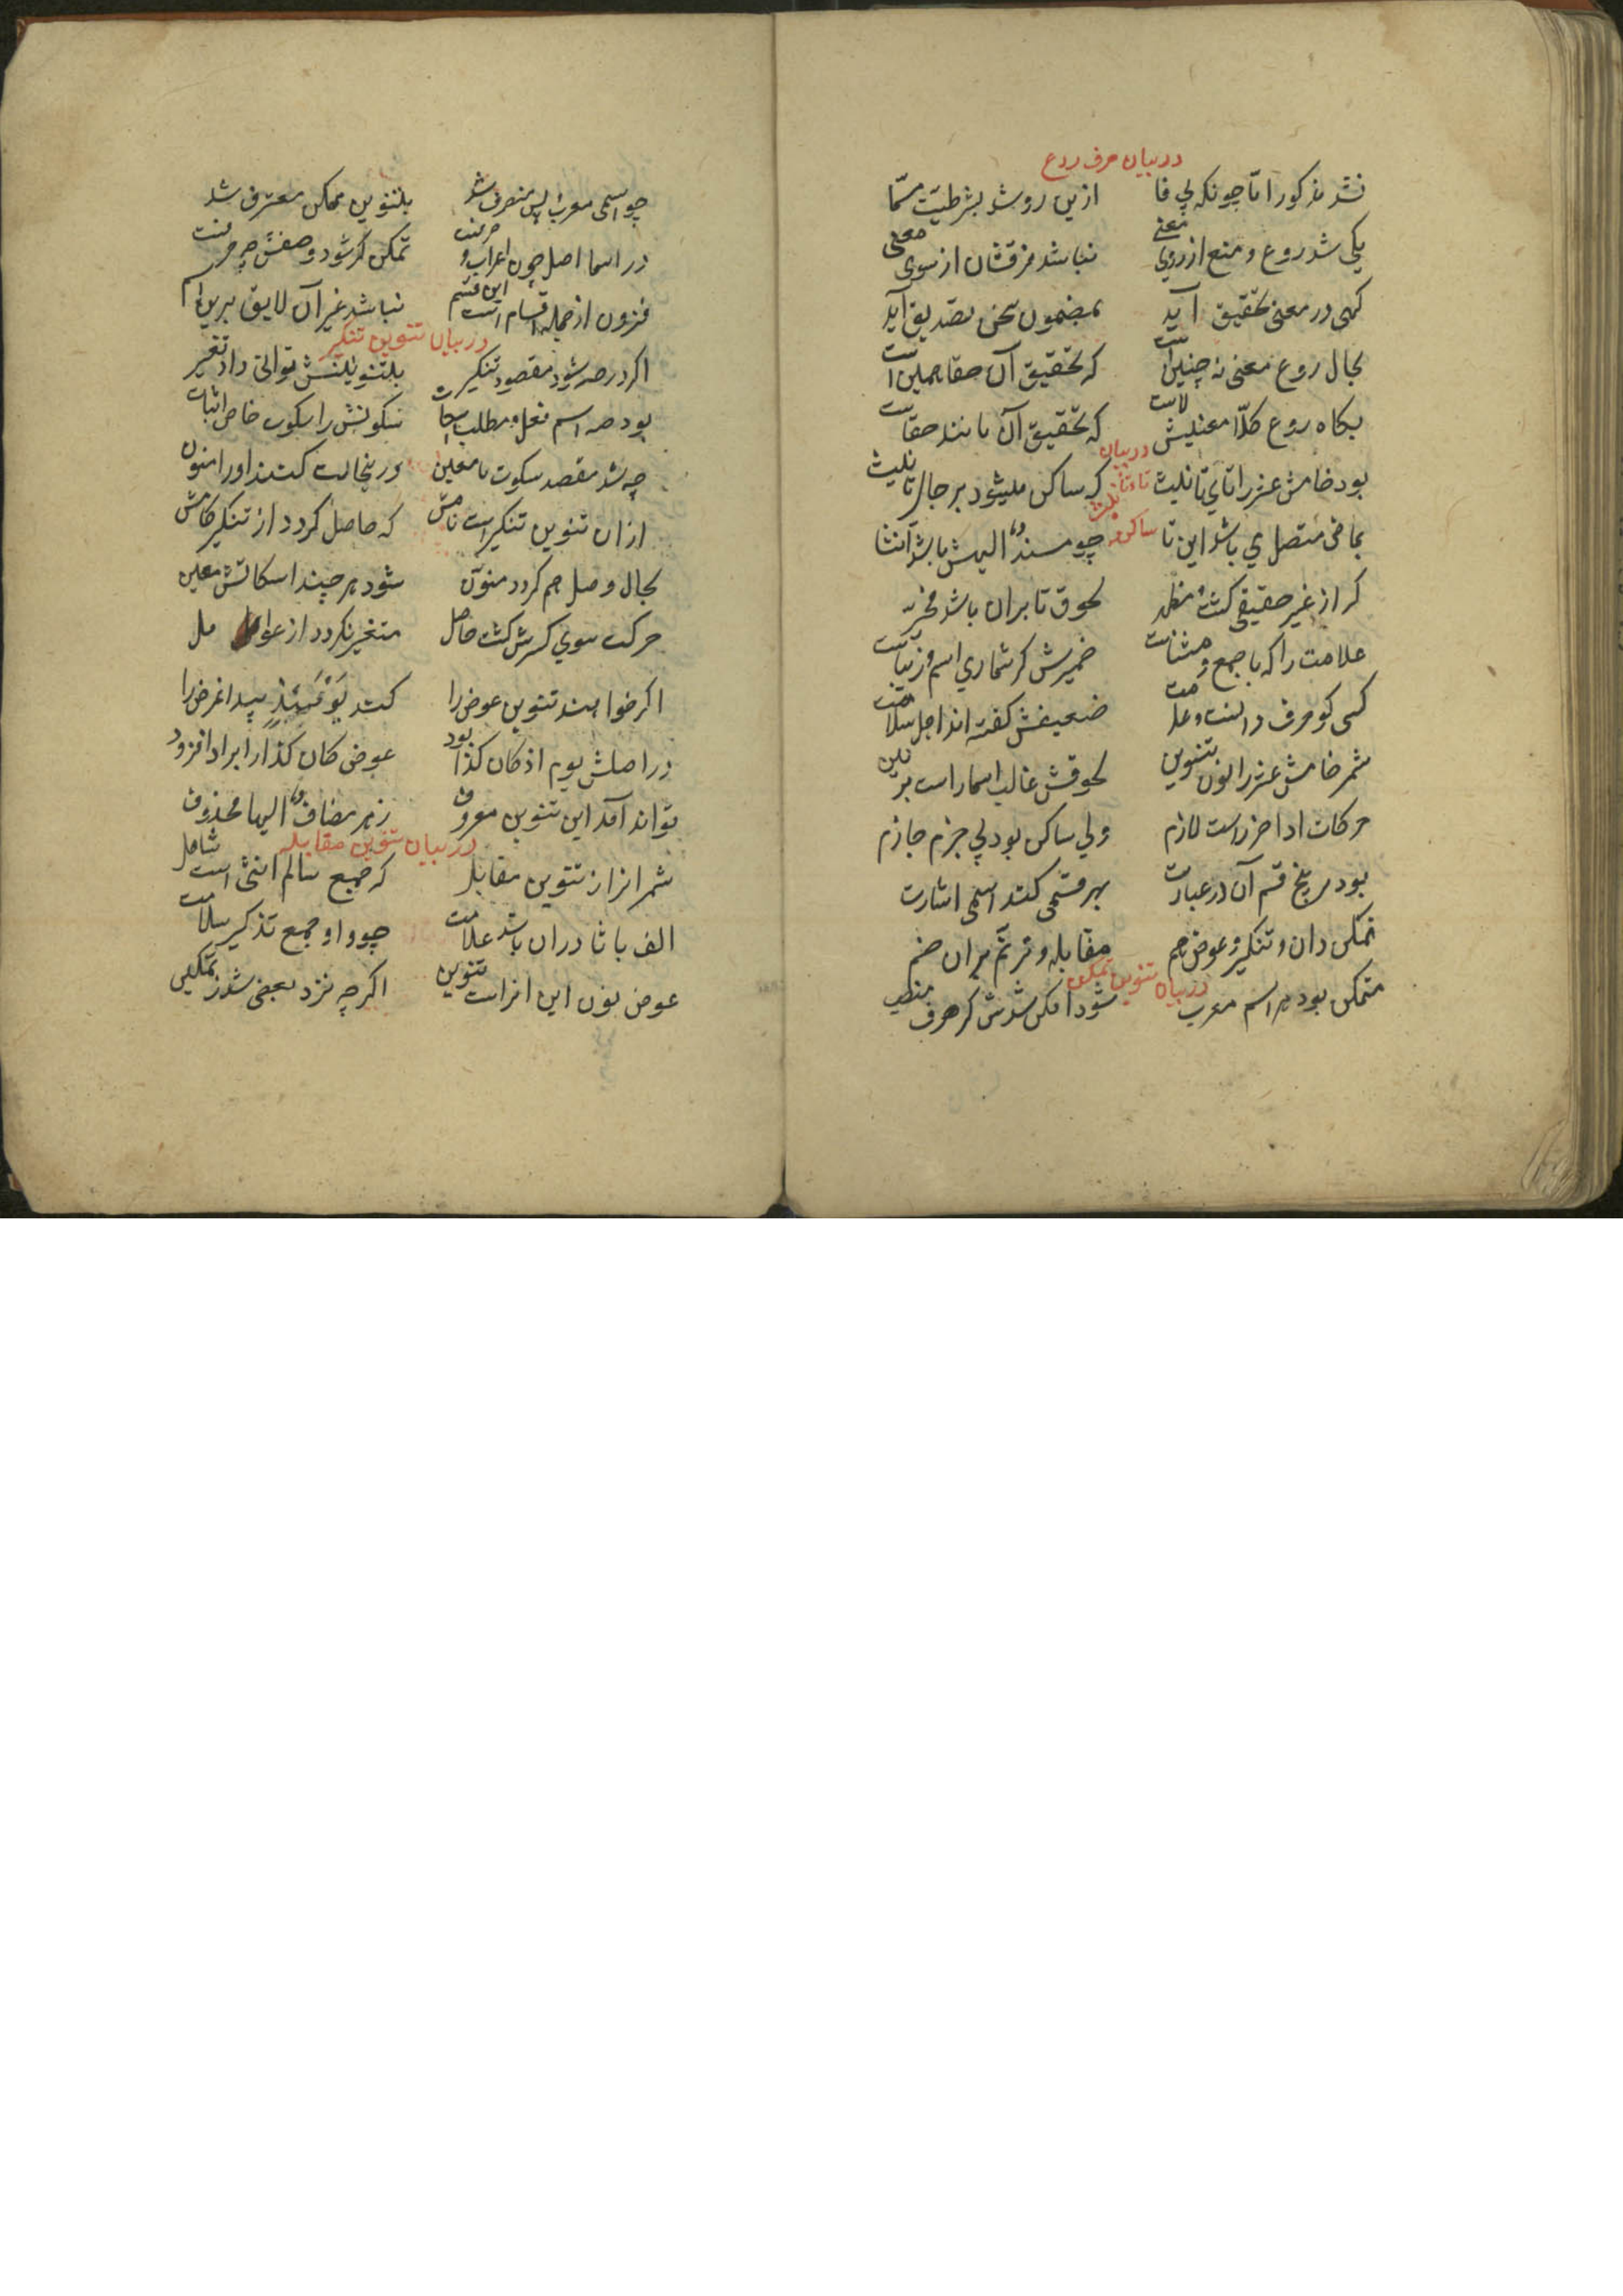 در بیان حرف ردع
نشد مذکور امّا چونکه بی فا ازین رو شد بشرطیت مسمّا
یکی شد ردع و منع از روی معنی نباشد فرقشان از سوی معنی
کهی در معنی تحقیق آید بمضمون سخن تصدیق آید
بحال ردع معنی نه چنین است که تحقیق آن حقا همین است
بکاه ردع کلّا معنیش لاست که تحقیق آن مانند حقاست
در بیان تاء تأنیث ساکنه
بود خامش عنزرا تای تانیث که ساکن میشود بر حال تانیث
بماضی متصل می باشد این تا چو مسندٌ الیهش باشد انثا
کر از غیر حقیقی کشت مظهر لحوق تا بران باشد مخیر
علامت را که با جمع و مثنات ضمیرش کر شماری اسم و زیباست
کسی کو حرف دانست و علامت ضعیفش کفته اند اجل سلامت
شمر خامش عنزرا نون تنوین لحوقش غالب اسما راست بر این
حرکات اداخر راست لازم ولی ساکن بود بی جزم جازم
بود بر پنج قسم آن در عبارت بهر قسمی کند اسمی اشارت
تمکن دان و تنکیر و عوض هم مقابله و ترنّم بران ضم
در بیان تنوین تمکن
متمکن بود هر اسم معرب شود امکن شدش کر صرف منصب
چو اسمی معرب پس منصرف شد بتنوین تمکن معترف شد
در اسما اصل چون اعراب و صرفت تمکن کر شود وصفش چه حرفست
فزون از جمله اقسام است این قسم نباشد غیر آن لایق برین اسم
در بیان تنوین تنکیر
اکر در صه شود مقصود تنکیر بتنوینش توانی داد تغییر
بود صه اسم فعل و مطلب اسکات سکونش را سکوت خاص اثبات
چه شد مقصد سکوت نامعین درینحالت کنند اورا منون
ازان تنوین تنکیر است نامش که حاصل کردد از تنکیر کامش
بحال وصل هم کردد منوّن شود هر چند اسکاتش معین
حرکت سوی کسرش کشت حاصل متغیر نکردد از عوامل
اکر خواهند تنوین عوض را کند یَوْمَئِذٍ پیدا غرض را
در اصلش یوم اذ کان کذا بود عوض کان کذا را برا داافزود
تواند آمد این تنوین معروف زهر مضافٌ الیها محذوف
در بیان تنوین مقابله
شمر انرا ز تنوین مقابل که جمع سالم انثی است شامل
الف با تا دران باشد علامت چو واو جمع تذکیر سلامت
عوض نون این انراست تنوین اکرچه نزد بعضی شد ز تمکین